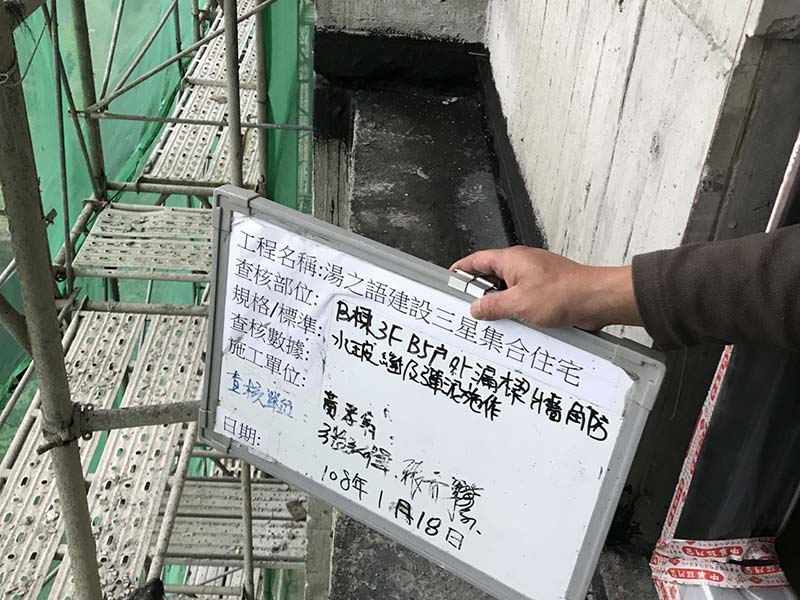 工程名稱:湯之語建設三星集合住宅
查核部位:
規格/標準:
查核數據:
施工單位:
查核單位
日期:
B棟3F B5戶外漏樑 牆角防
水玻纖及彈泥施作
108年1月18日